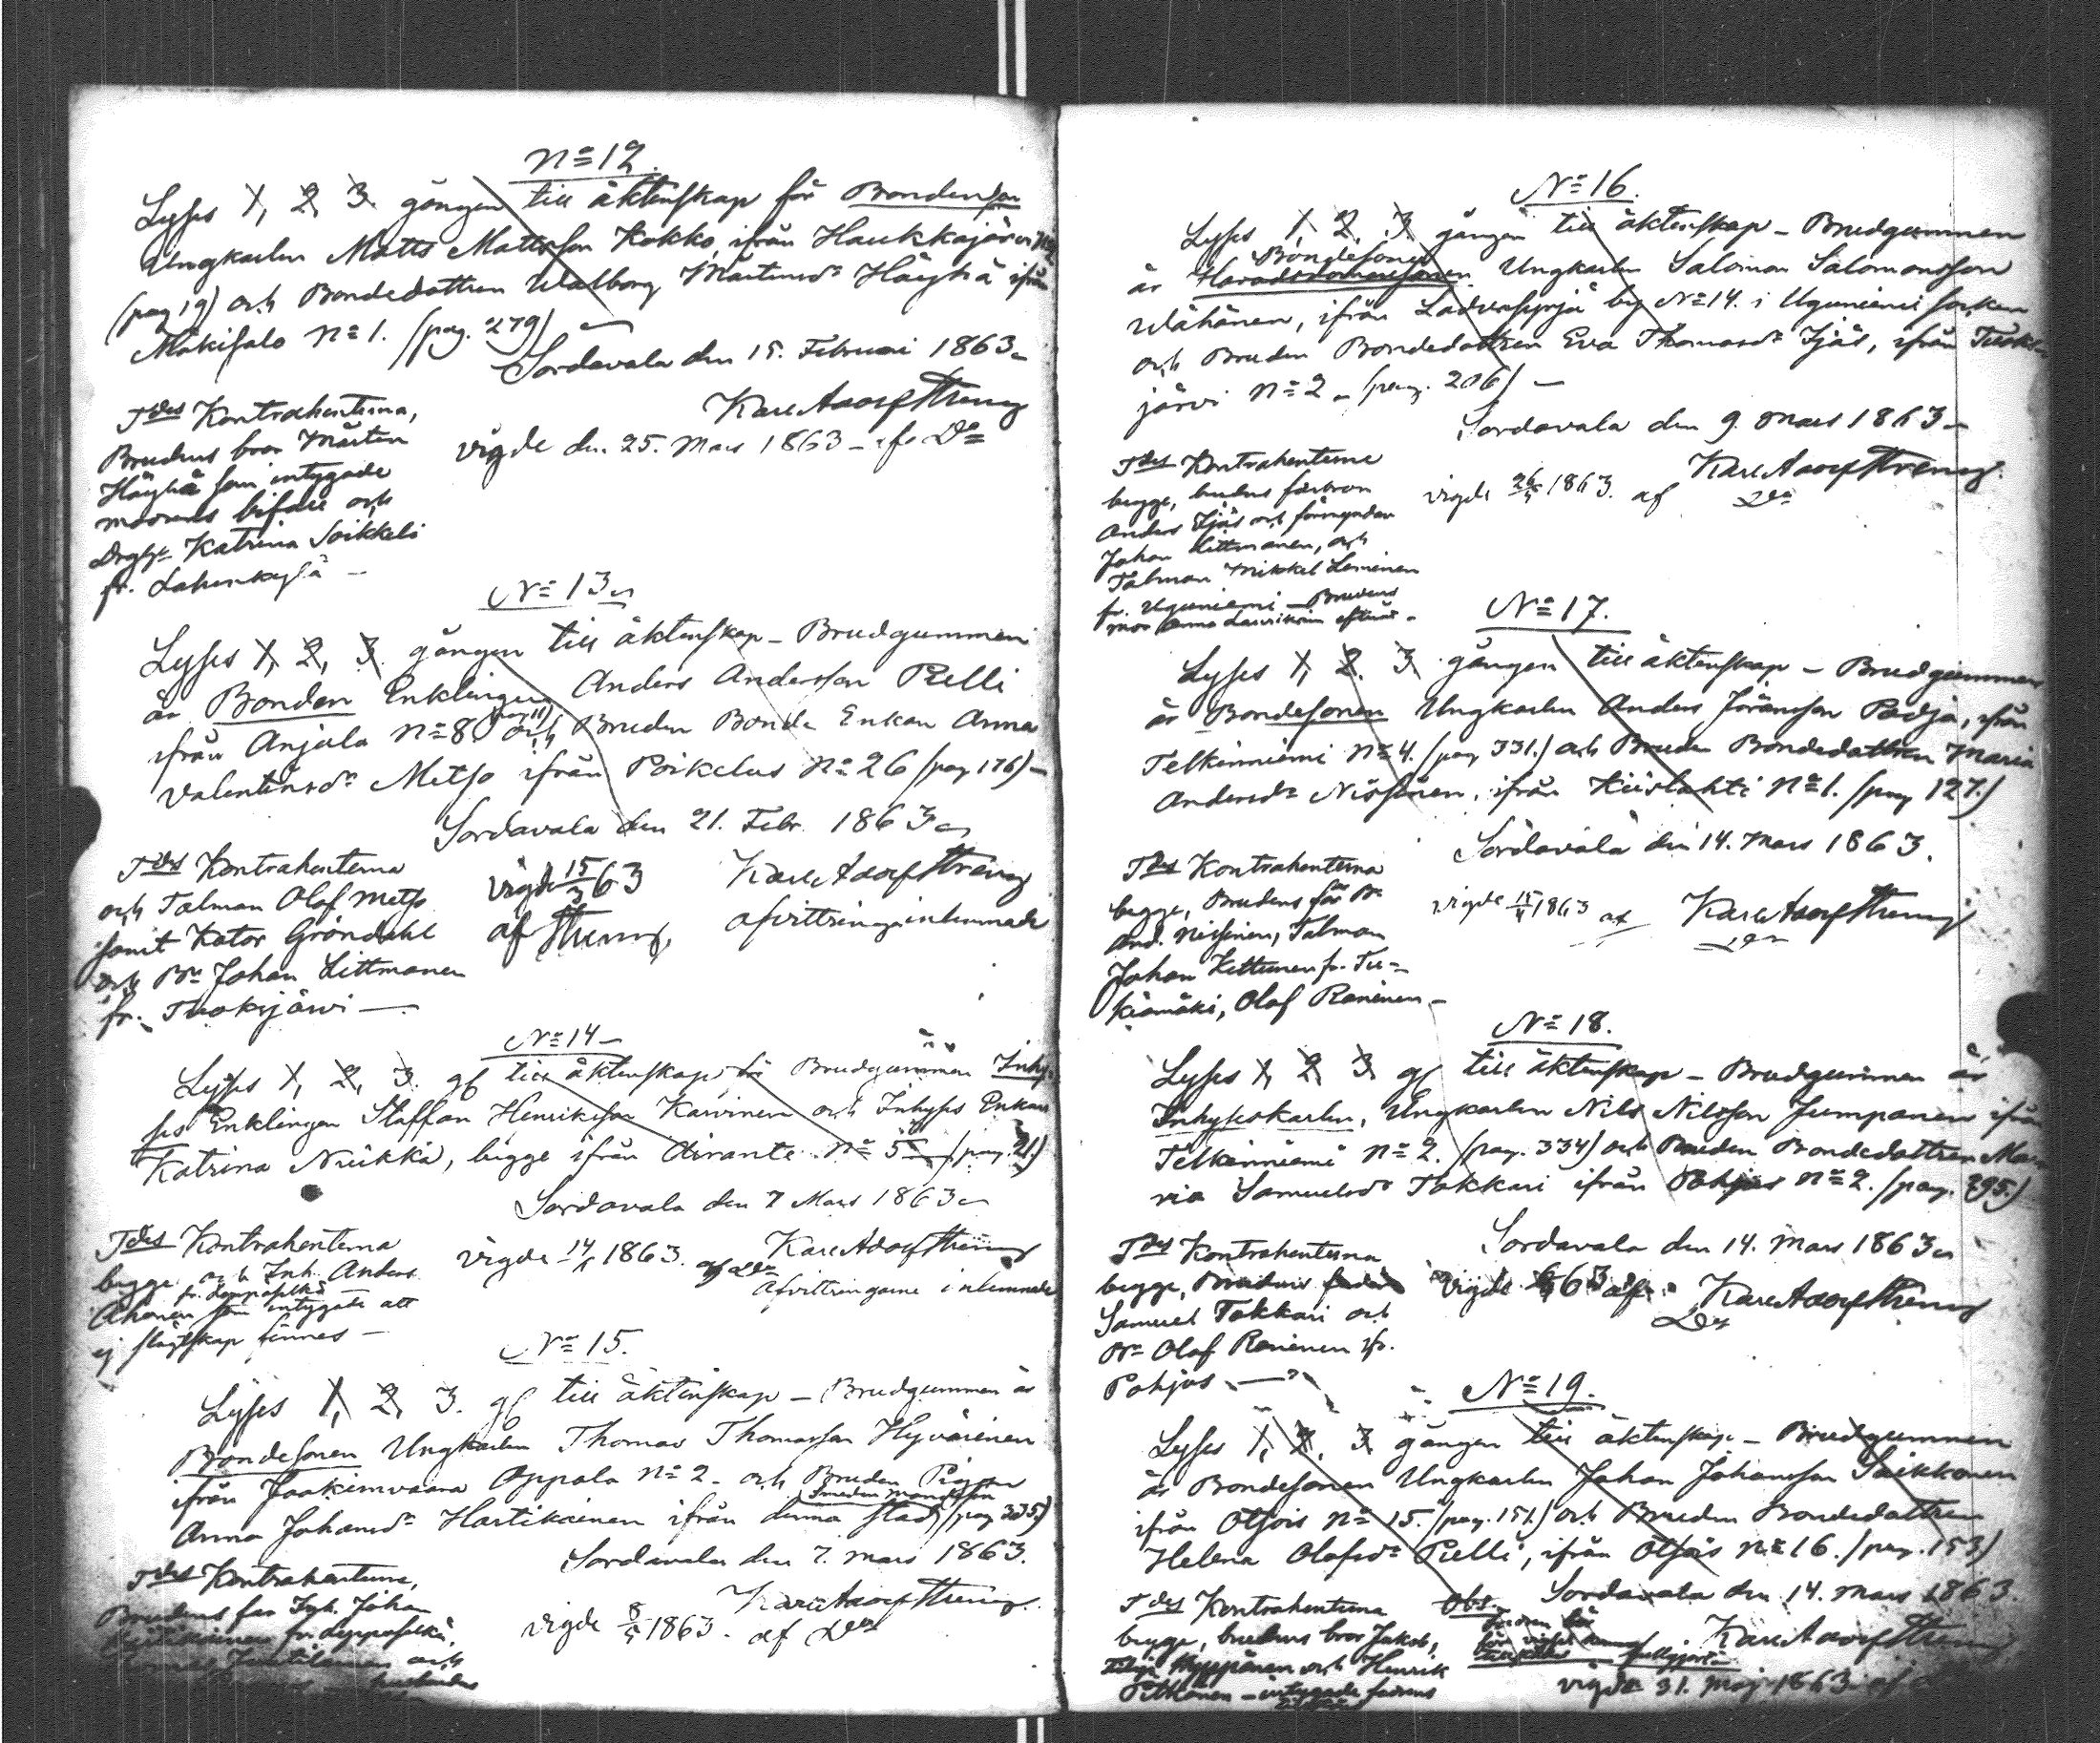 No 12.
Lyses 1, 2, 3. gången till äktenskap för Bondeson
Ungkarlen Matts Mattsson Kokko, ifrån Haukkajärvi
(pag 19) och Bondedottren Walborg Mårtensdr Häyhä ifrån
Mäkisalo No 1. (pag. 279) —
Sordavala den 15. Februari 1863
Karl Adolf Streng
Tdes Kontrahenterna,
Brudens bror Mårten
Häyhä som intygade
modrens bifall och
Katrina Soikkeli
fr. Lahenkylä —
vigde den 25. Mars 1863 — af Do
No 13
Lyses 1, 2, 3. gången till äktenskap — Brudgummen
är Bonden Enklingen Anders Andersson Pelli
ifrån Anjala No 8 (pag 11) och Bruden Bonde Enkan Anna
Valentinsdr Metso ifrån Poikelus No 26 (pag 176) —
Sordavala den 21. Febr. 1863
Tdes Kontrahenterna
och Talman Olof Metso
samt Kator Gröndahl
och Bn Johan Littmanen
fr. Tuoksjärvi —
vigde 15/3 63
af Streng,
Karl Adolf Streng
afvittring inlemnade
No 14 —
Lyses 1, 2, 3. gg till äktenskap Brudgummen är Inhy-
ses Enklingen Staffan Henriksson Karvinen och Inhyses Enkan
Katrina Niukka, begge ifrån Airanne No 5 (pag. 21.)
Sordavala den 7 Mars 1863
Tdes Kontrahenterna
begge och Inh. Anders
fr. Leppäselkä
Ahonen som intygade att
ej slägtskap finnes —
vigde 14/4 1863. af Do
Karl Adolf Streng
afvittringarne inlemnade
No 15.
Lyses 1, 2, 3. gg till äktenskap — Brudgummen är
Bondesonen Ungkarlen Thomas Thomasson Hyvärinen
ifrån Jaakimvaara Oppola No 2 — och Bruden Pigan
Anna Johansdr Hartikainen ifrån denna stad (pag 335)
Sordavala den 7. Mars 1863.
Tdes Kontrahenterna,
Brudens far Inh. Johan
Hartikainen fr. Leppäselkä,
och
vigde 8/4 1863. af Do
Karl Adolf Streng.
No 16.
Lyses 1, 2, 3. gången till äktenskap — Brudgummen
Bondesonen
är Ungkarlen Salomon Salomonsson
Wähänen, ifrån Ladvasyrjä by No 14. i Uguniemi socken
och Bruden Bondedottren Eva Thomasdr Ijäs, ifrån Tuoks-
järvi No 2 — (pag. 206) —
Sordavala den 9. Mars 1863
Tdes Kontrahenterne
begge, brudens farbron
Anders Ijäs och förmyndar
Johan Littmanen, och
Talman Mikkel Leminen
fr. Uguniemi — Brudens
mor Anna
vigde 26/4 1863. af
Karl Adolf Streng.
Do
No 17.
Lyses 1, 2. 3. gången till äktenskap — Brudgummen
är Bondesonen Ungkarlen Anders Göransson Padja, ifrån
Telkinniemi No 4. (pag 331.) och Bruden Bondedottren Maria
Andersdr Nissinen, ifrån Kiislahti No 1. (pag 127.)
Sordavala den 14. Mars 1863.
Tdes Kontrahenterna
begge, Brudens far Bn
And. Nissinen, Talman
Johan Kettunen fr. Tu-
kiamäki, Olof Raninen —
vigde 15/4 1863 af
Karl Adolf Streng
Do
No 18.
Lyses 1, 2, 3. gg till äktenskap — Brudgummen är
Inhyseskarlen, Ungkarlen Nils Nilsson Jumpanen ifrån
Telkinniemi No 2. (pag. 334) och Bruden Bondedottren Ma-
ria Samuelsdr Tokkari ifrån Pohjus No 2. (pag. 295.)
Sordavala den 14. Mars 1863
Tdes Kontrahenterna
begge, Brudens fader
Samuel Tokkari och
Bn Olof Raninen ifr.
Pohjus —
vigde 63 af
Karl Adolf Streng
Do
No 19.
Lyses 1, 2, 3. gången till äktenskap — Brudgummen
är Bondesonen Ungkarlen Johan Johansson Saikkonen
ifrån Otsois No 15. (pag. 151.) och Bruden Bondedottren
Helena Olofsdr Pelli, ifrån Otsois No 16. (pag. 153)
Sordavala den 14. Mars 1863.
Tdes Kontrahenterna
begge, brudens bror Jakob,
Hyppönen och Henrik
Pitkänen — intygade fadrens
Obs.
Karl Adolf Streng
vigde 31. Maj 1863 af